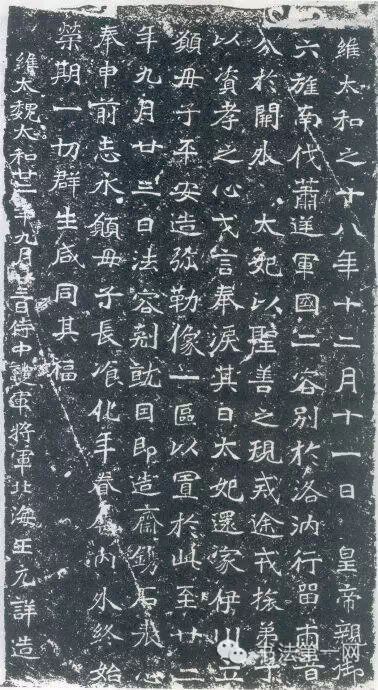 維太和之十八年十二月十一日 皇帝親御
六旌南伐蕭逆軍國二容別於洛汭行留兩音
分於關外 太妃以聖善之規戒途戎旅弟子
以資孝之心戈言奉淚其日太妃還家伊川立
願母子平安造弥勒像一區以置於此至廿二
年九月廿三日法容剋就因即造齋鐫石表心
奉申前志永願母子長飡化年眷內外終始
榮期一切群生咸同其福
維大魏太和廿二年九月廿三日侍中護軍將軍北海王元詳造
书法第一网